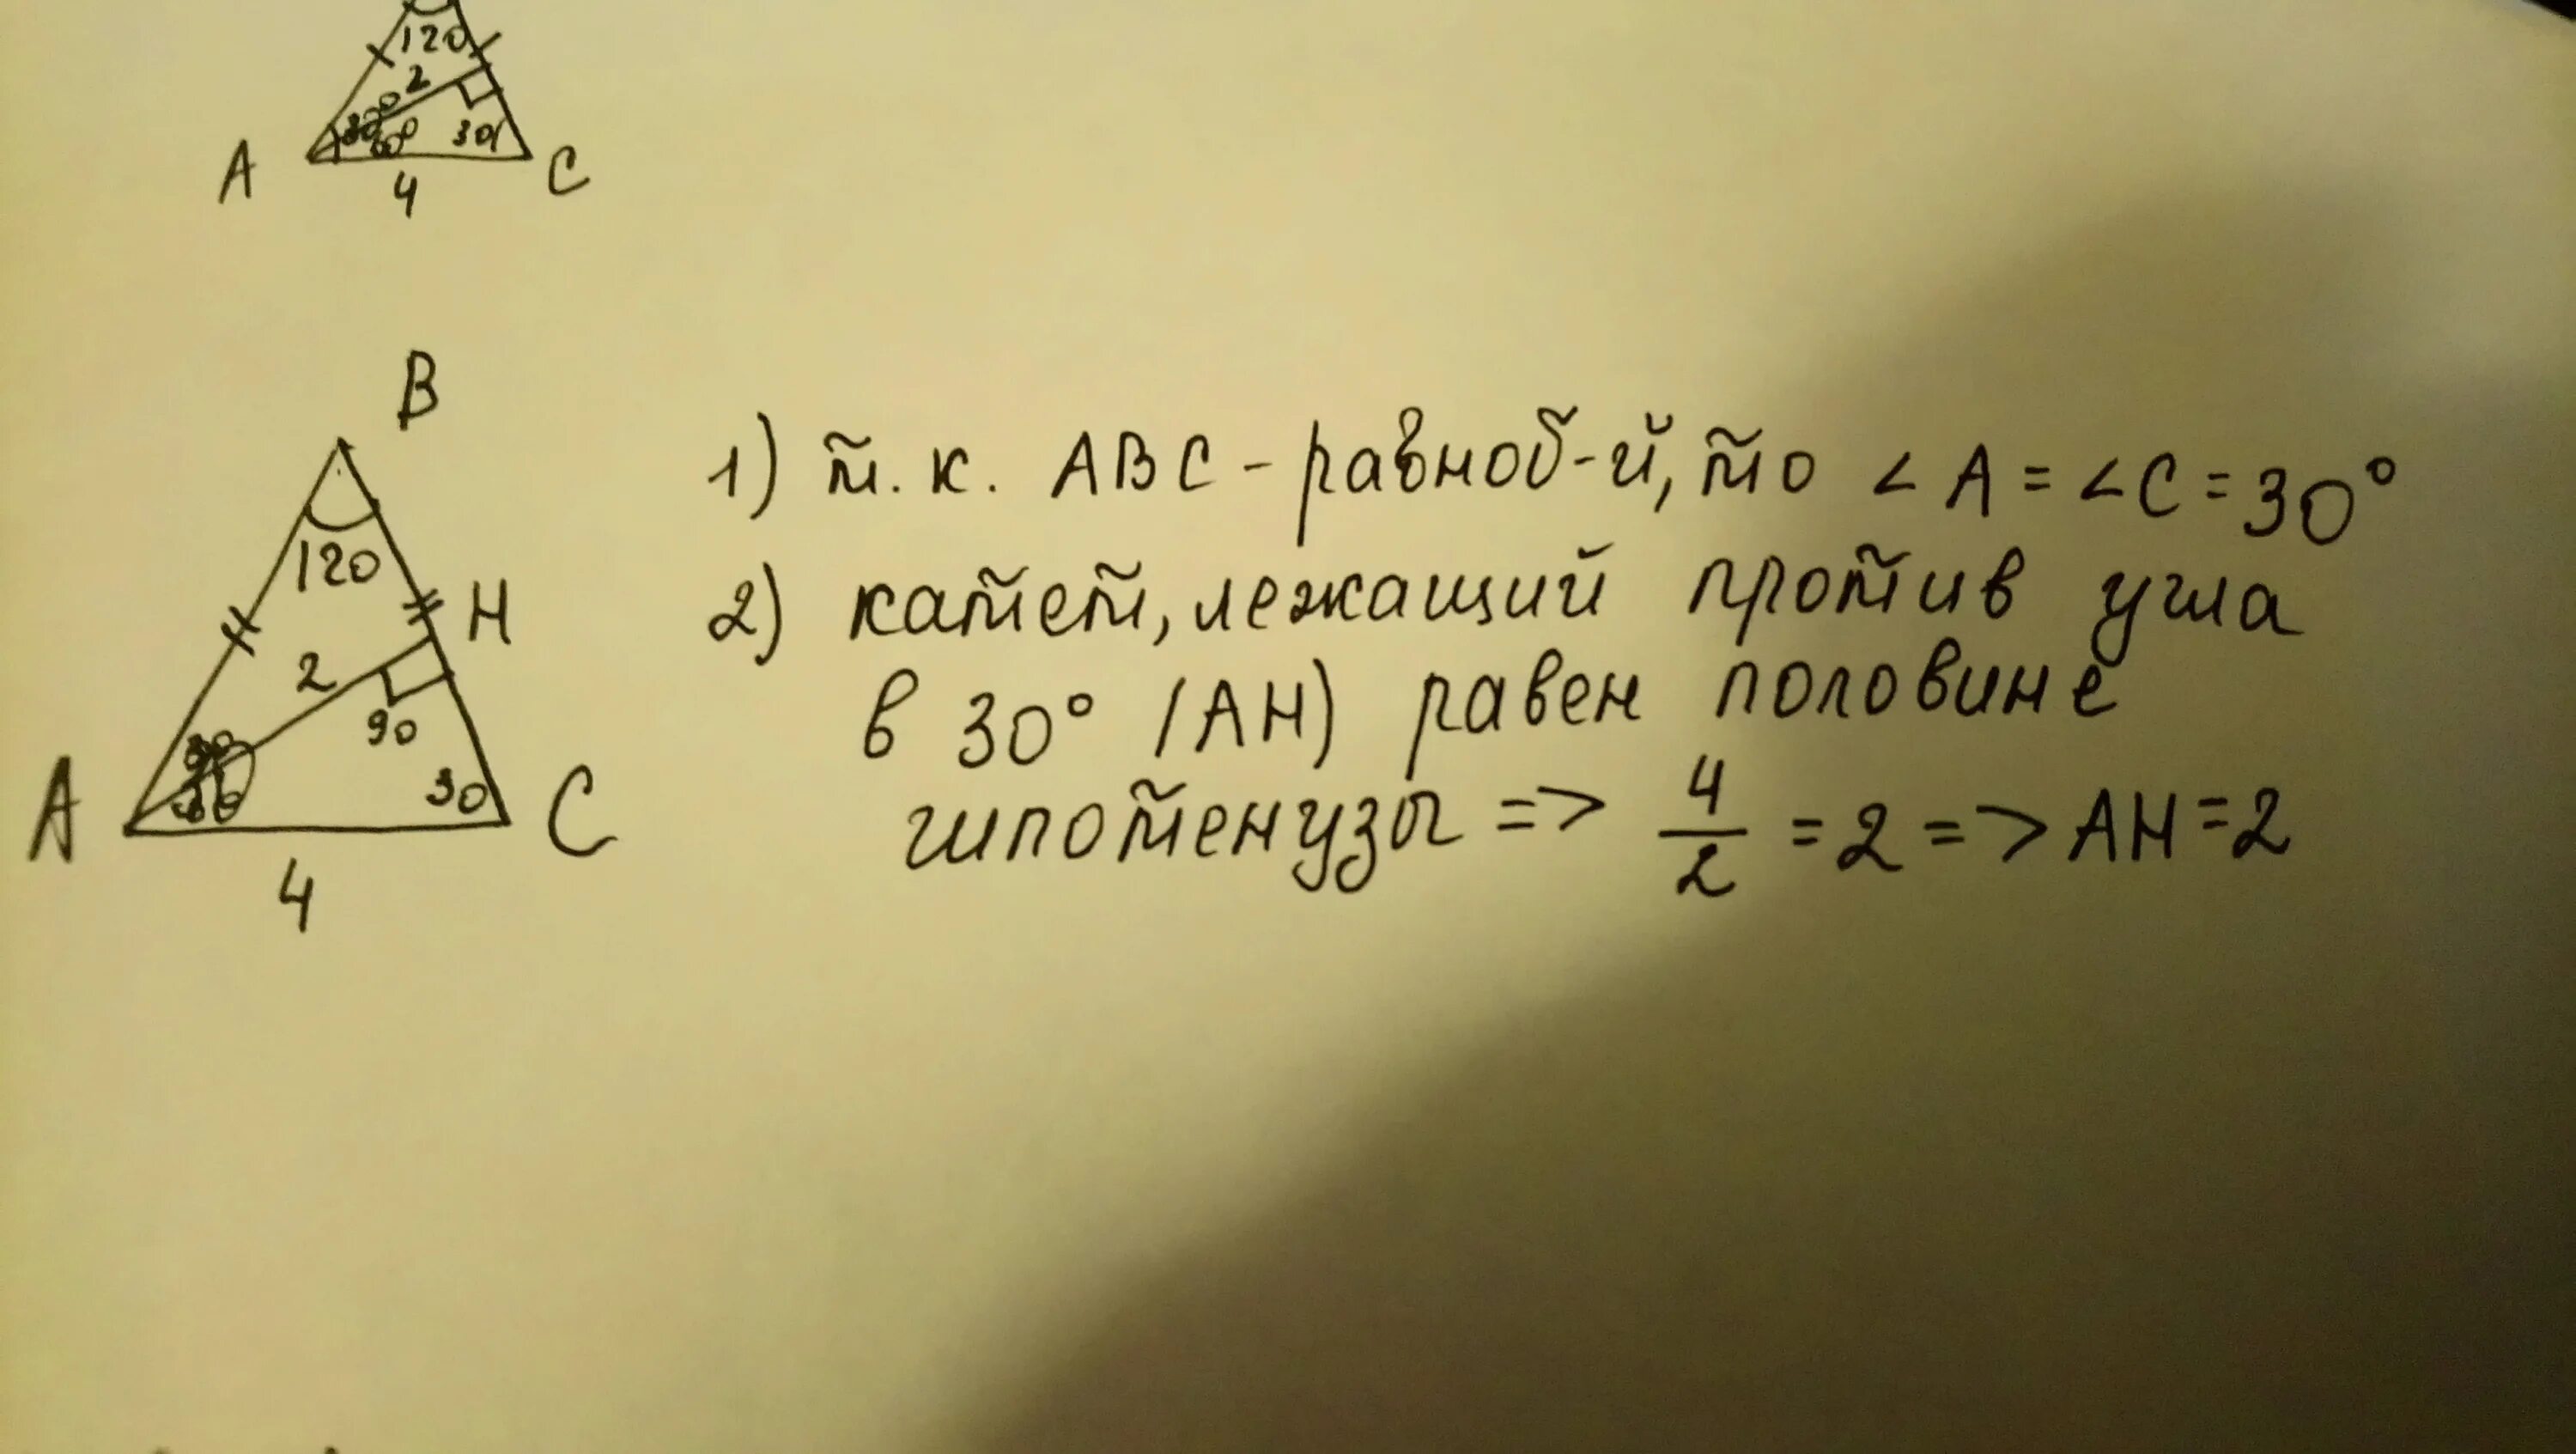 120
2
30°
60°
30
A
C
4
B
120
H
2
90
30
A
C
4
1) т.к. ABC - равноб-й, то < A = < C = 30°
2) катет, лежащий против угла
в 30° (AH) равен половине
гипотенузы => 4/2 = 2 => AH = 2